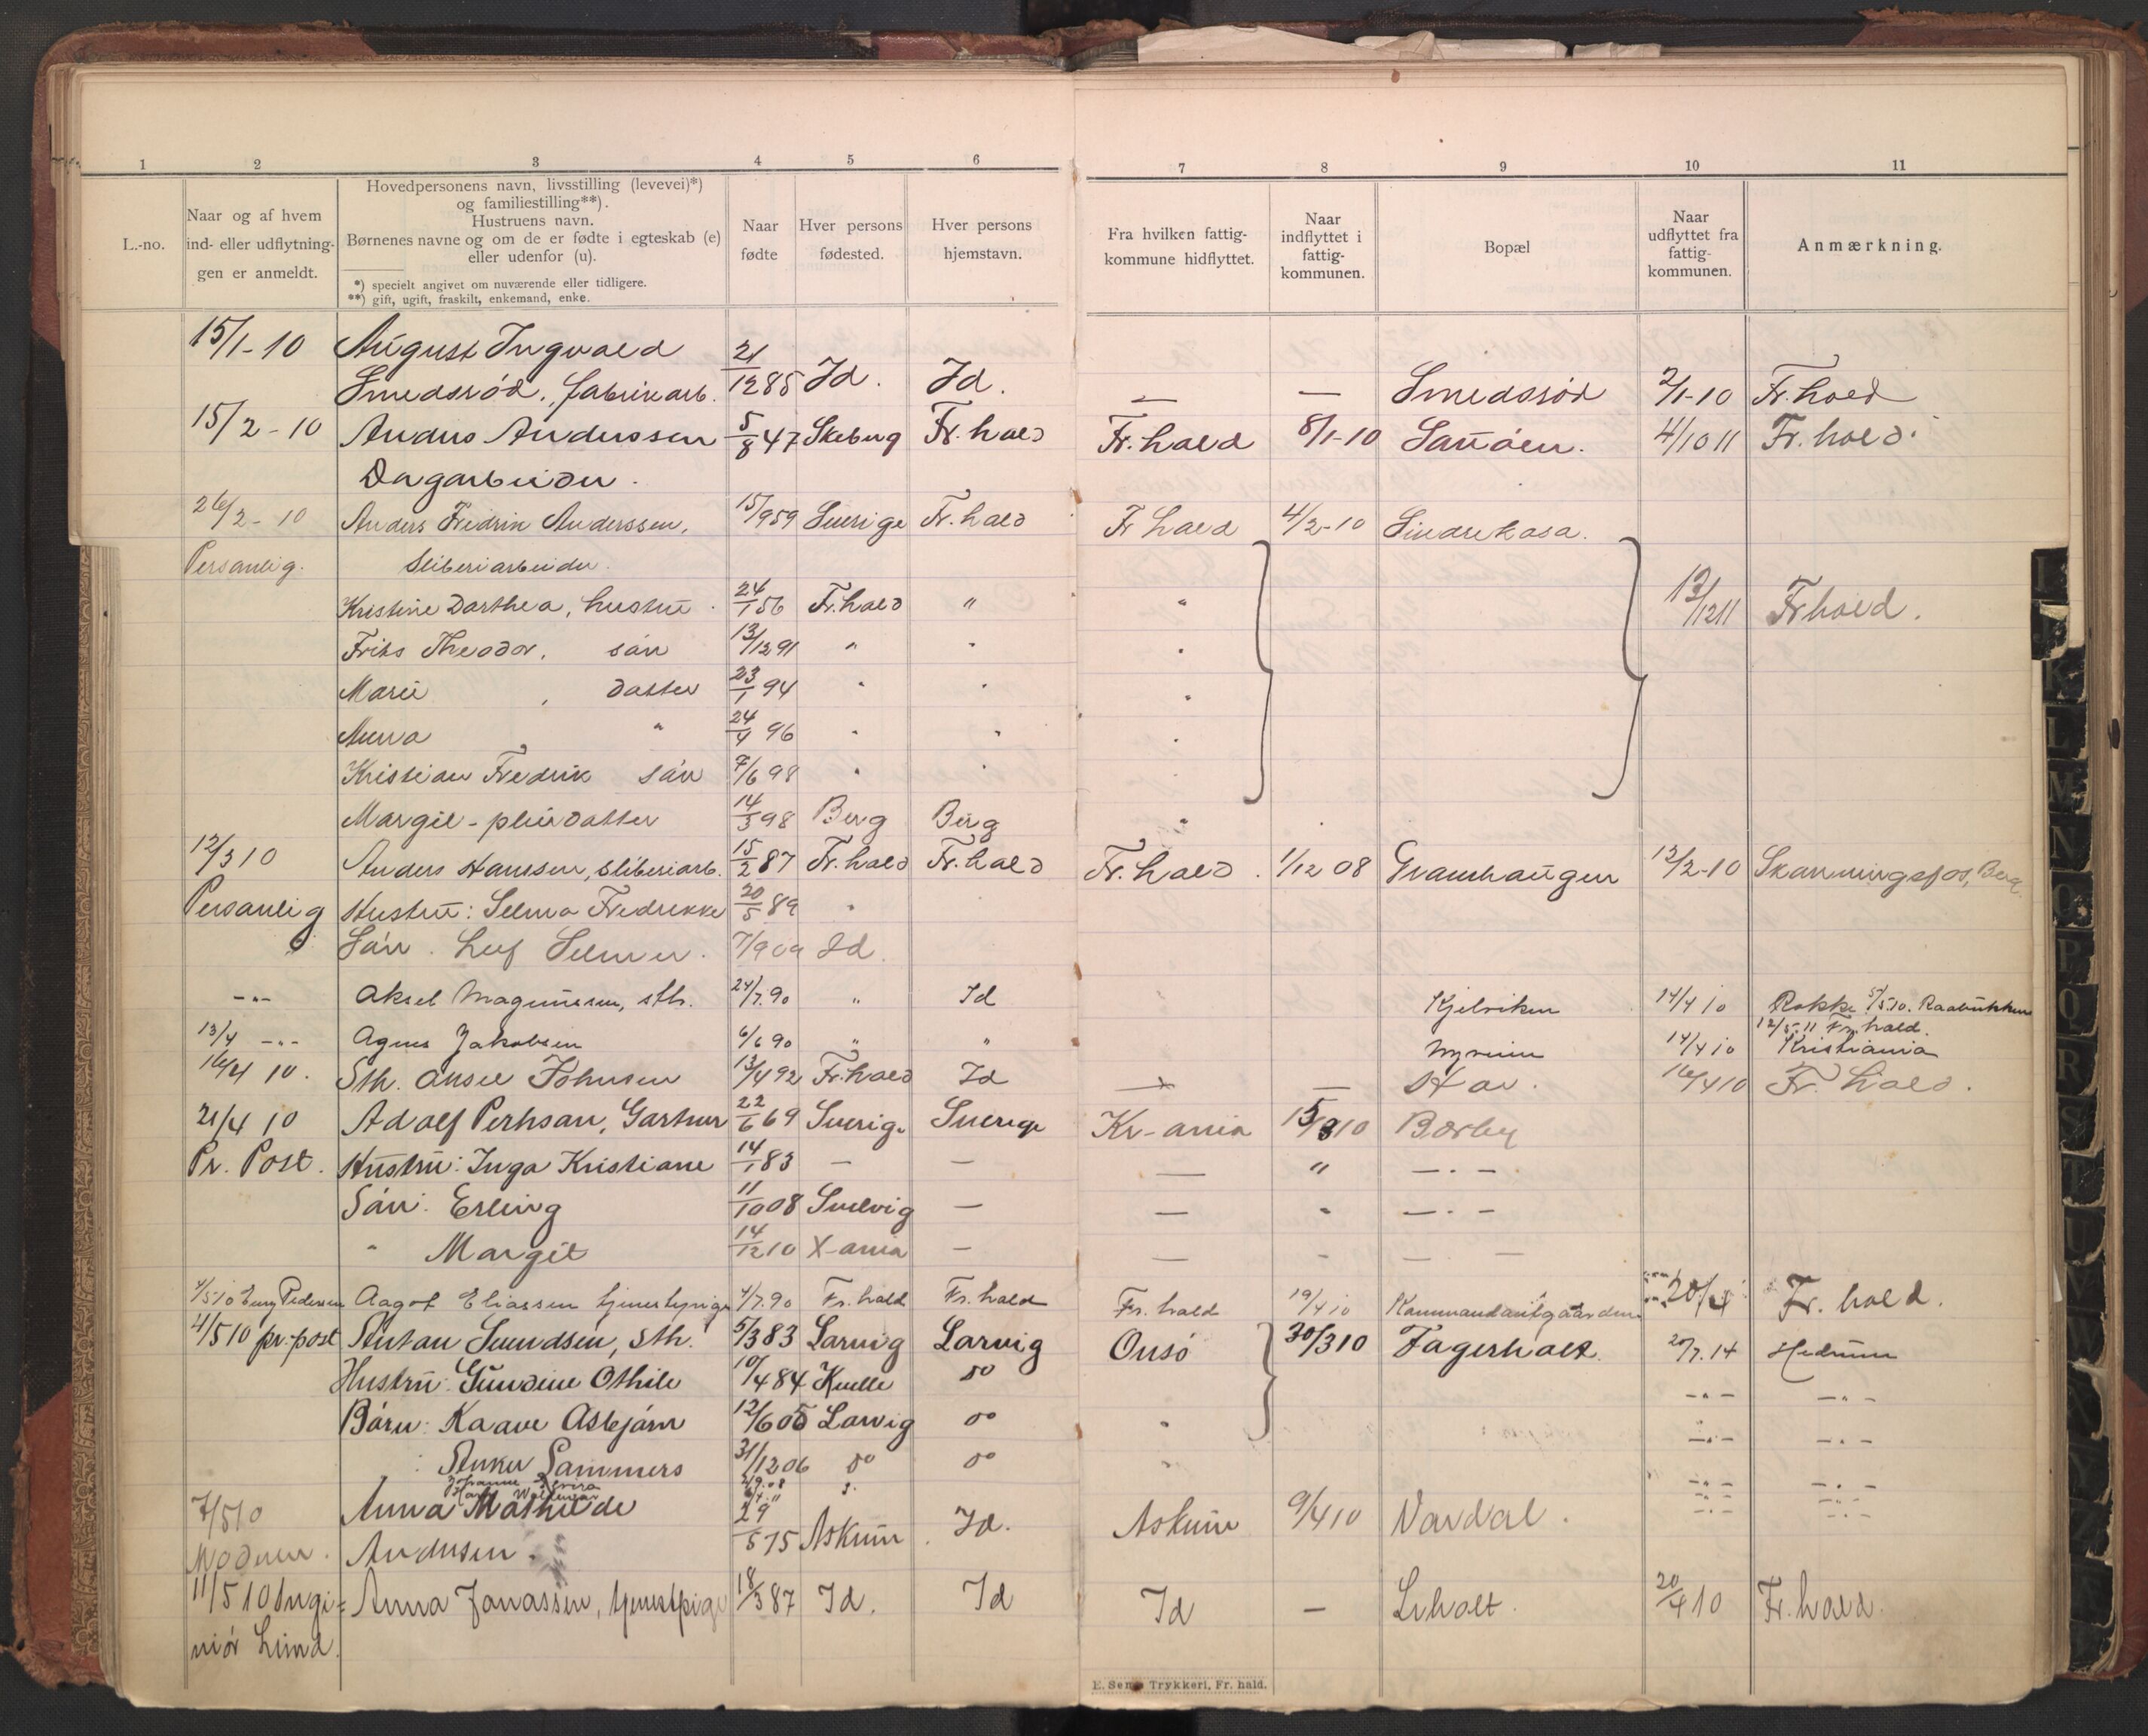 1 2 3 4 5 6 7 8 9 10 11
L.-no.
Naar og af hvem
ind- eller udflytnin-
gen er anmeldt.
Hovedpersonens navn, livsstilling (levevei)*)
og familiestilling**).
Hustruens navn.
Børnenes navne og om de er fødte i egteskab (e)
eller udenfor (u).
*) specielt angivet om nuværende eller tidligere.
**) gift, ugift, fraskilt, enkemand, enke.
Naar
fødte
Hver persons
fødested.
Hver persons
hjemstavn.
Fra hvilken fattig-
kommune hidflyttet.
Naar
indflyttet i
fattig-
kommunen.
Bopæl
Naar
udflyttet fra
fattig-
kommunen.
Anmærkning.
15/1-10 August Ingvald 21
Smedsröd, fabrikarb. 12 85 Id. Id. — — Smedsröd 2/1-10 Fr.hald
15/2-10 Anders Anderssen 5/8 47 Skeberg Fr.hald Fr.hald 8/1-10 Sauöen. 4/10 11 Fr.hald.
Dagarbeider.
26/2-10 Anders Fredrik Anderssen, 15/9 59 Sverige Fr.hald Fr hald 4/2-10
Personlig. Sliberiarbeider.
Kristine Dorthea, hustrü. 24/1 56 Fr.hald " " 13/12 11 Fr hald.
Frits Theodor, sön 13/12 91 " " "
Marie, datter 23/1 94 " " "
Anna " 24/4 96 " " "
Kristian Fredrik sön 7/6 98 " "
Margit - pleiedatter 14/3 98 Berg Berg "
12/3 10 Anders Hanssen, sliberiarb. 15/2 87 Fr.hald Fr.hald Fr.hald. 1/12 08 Granhaugen 12/2-10 Skanningsfos, Berg.
Personlig Hustrü: Selma Fredrikke 20/5 89 "
Sön. Leif Selmer. 7/9 09 Id.
-"- Aksel Magnusen, sth. 24/7.90 " Id Kjelviken 14/4 10 Rokke 5/5.10. 
12/5.11 Fr.hald.
13/4 -"- Agnes Jakobsen 6/6 90 " " 14/4 10 Kristiania
16/4 10. Sth. Aksel Johnsen 13/4 92 Fr.hald Id — — 16/4 10 Fr.hald.
21/4 10 Adolf Perhson, Gartner 22/6 69 Sverige Sverige Kr-ania 15/3 10 Borby
Pr. Post. Hüstrü: Inga Kristiane 14/1 83 — — — " — " —
Sön: Erling 11/10 08 Svelvig — — " — " —
" Margit 14/12 10 X-ania — — - — —
4/5 10 Pedersen Aagot Eliassen tjenestepige 4/7.90 Fr.hald Fr.hald Fr.hald 19/4 10 Kommandantgaarden 20/4 Fr. hald.
4/5 10 pr. post Anton Svendsen, sth. 5/3 83 Larvig Larvig Onsö 30/3 10 Fagerholt. 20/7.14 Hedrum
Hustrü: Gundine Othile 10/4 84 Kvelle do -"- -"-
Börn: Kaare Asbjörn 12/6 05 Larvig do " -"- -"-
: Anker Sammers 31/12 06 do do " -"- -"-
7/5 10 Anna Mathilde 29
Moderen. Andersen. 5 75 Askim Id. Askim 9/4 10 Nordal.
11/5 10 Ingi= Anna Jonassen, tjenestpige 18/3 87 Id. Id Id — Liholt. 20/4 10 Fr.hald.
niör Lund.
E. Sems Trykkeri, Fr. hald.
K
L
M
N
O
P
O
R
S
T
U